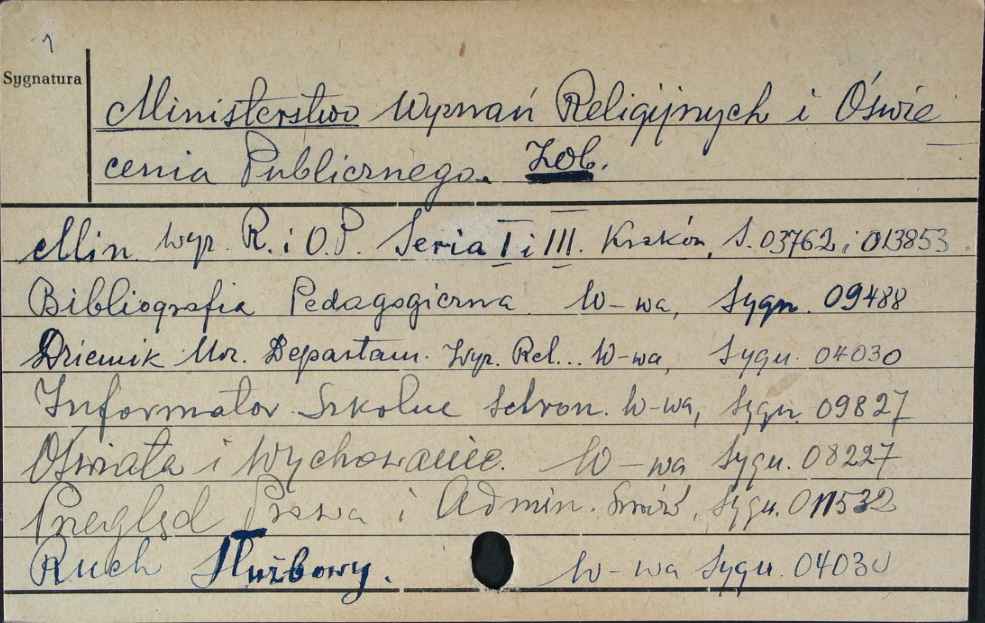 1
Sygnatura
Ministerstwo Wyznań Religijnych i Oświe
cenia Publicznego. Zob.
Min wyz. R. i O.P. Seria I i III. Kraków, S. 03762 i 013853
Bibliografia Pedagogiczna W-wa, Sygn. 09488
Dziennik Urz. Departam. Wyz. Rel... W-wa, Sygn. 04030
Informator Szkolne W-wa, Sygn. 09827
Oświata i Wychowanie. W-wa Sygn. 08227
Przegląd Prawa i Admin. Sygn. 011532
Ruch Służbowy. W-wa Sygn. 04030